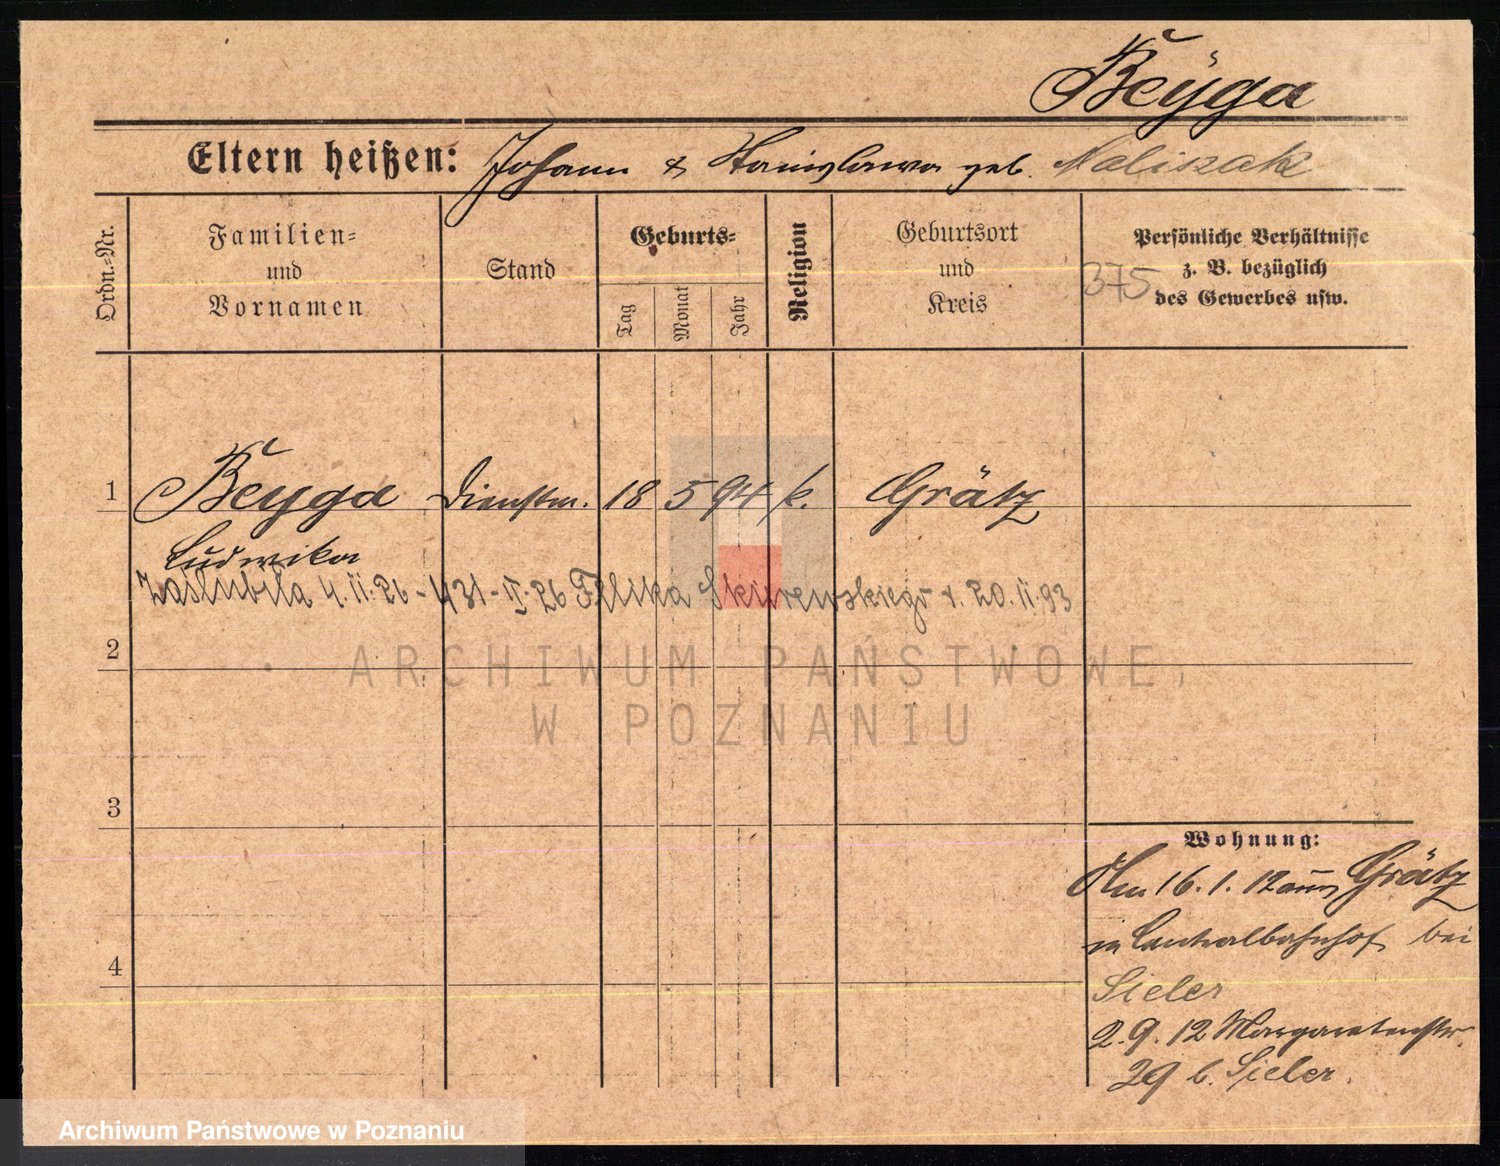 Beyga
Eltern heißen: Johann & Stanislawa geb. Maliszak
Ordn.-Nr.
Familien-
und
Vornamen
Stand
Geburts-
Tag
Monat
Jahr
Religion
Geburtsort
und
Kreis
Persönliche Verhältnisse
z. B. bezüglich
des Gewerbes usw.
375
1 Beyga Dienstm. 18 5 94 k. Grätz
Ludwika
Zaślubiła 4.II.26 - 431-II-26 Feliksa Skurewskiego 20.II.93
2
3
4
Wohnung:
Am 16.1.12 aus Grätz
n Centralbahnhof bei
Sieler
2.9.12 Margaretenstr.
29 b. Sieler.
ARCHIWUM PAŃSTWOWE
W POZNANIU
Archiwum Państwowe w Poznaniu